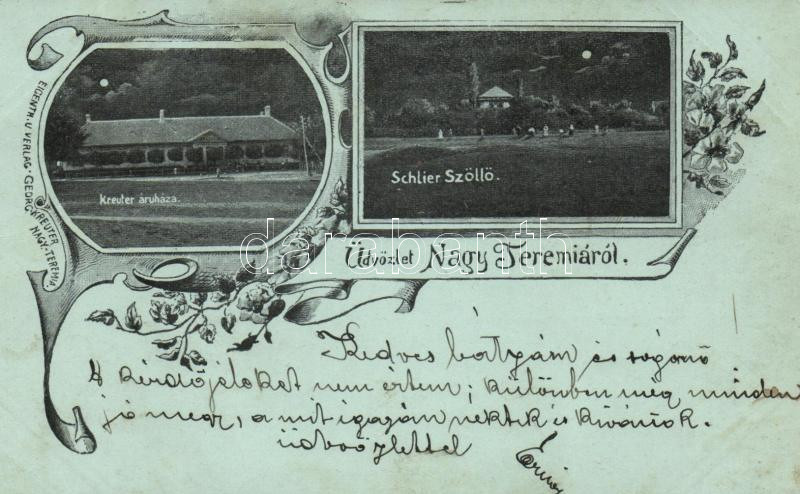 EIGENTH. U. VERLAG · GEORG KREUTER NAGY-TEREMIA
Kreuter áruháza.
Schlier Szöllö.
Üdvözlet Nagy Teremiáról.
darabanth
Kedves bátyám és sógornő
A kérdőjeleket nem értem; különben még minden
jó megy, a mit igazán nektek is kívánok.
üdvözlettel